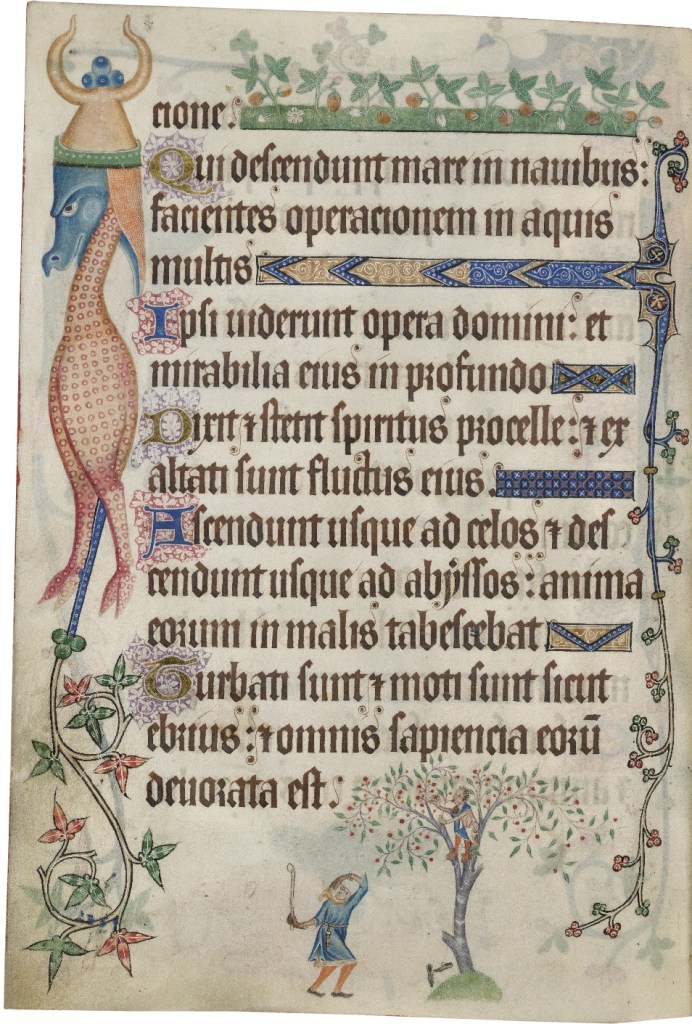 cione.
Qui descendunt mare in nauibus:
facientes operacionem in aquis
multis
Ipsi uiderunt opera domini: et
mirabilia eius in profundo
Dixit ⁊ stetit spiritus procelle: ⁊ ex
altati sunt fluctus eius.
Ascendunt usque ad celos ⁊ des
cendunt usque ad abẏssos: anima
eorum in malis tabescebat
Turbati sunt ⁊ moti sunt sicut
ebrius: ⁊ omnis sapiencia eorū
deuorata est.